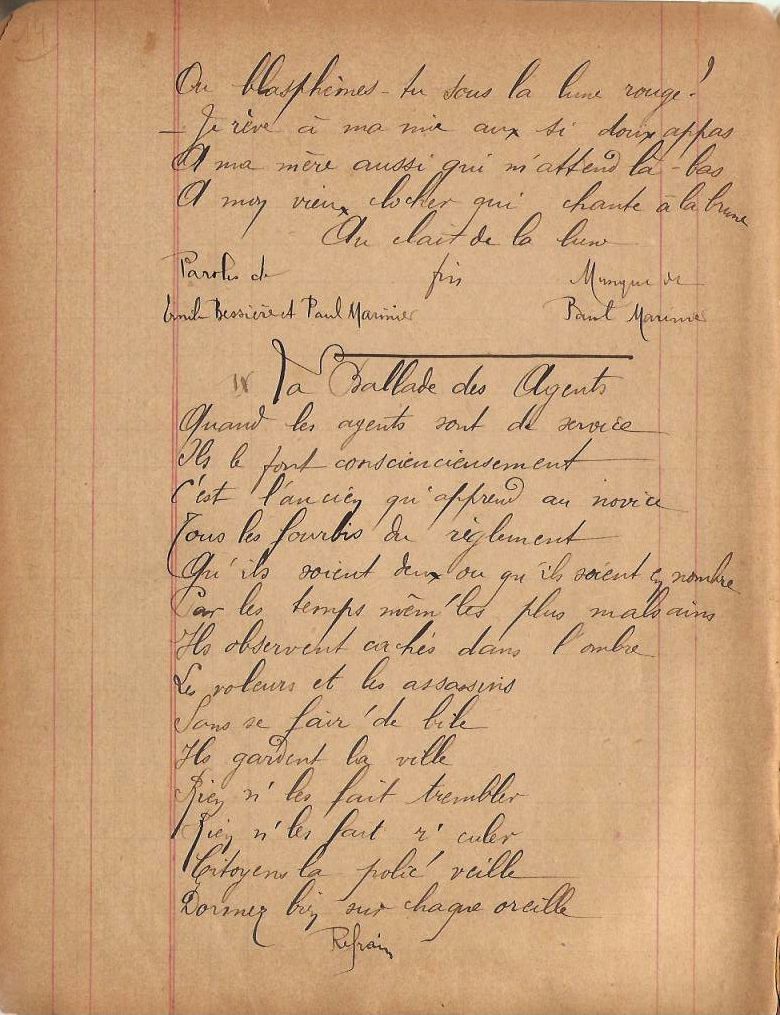 14
Ou blasphèmes-tu sous la lune rouge?
- Je rêve à ma mie aux si doux appas
A ma mère aussi qui m'attend là-bas
A mon vieux clocher qui chante à la brune
Au clair de la lune
Paroles de fin Musique de
Emile Bessière et Paul Marinier Paul Marinier
La Ballade des Agents
Quand les agents sont de service
Ils le font consciencieusement
C'est l'ancien qu'apprend au novice
Tous les fourbis du règlement
Qu'ils soient deux ou qu'ils soient en nombre
Par les temps mêm' les plus malsains
Ils observent cachés dans l'ombre
Les voleurs et les assassins
Sans se fair' de bile
Ils gardent la ville
Rien n' les fait trembler
Rien n' les fait r' culer
Citoyens la polic' veille
Dormez bien sur chaque oreille
Refrain